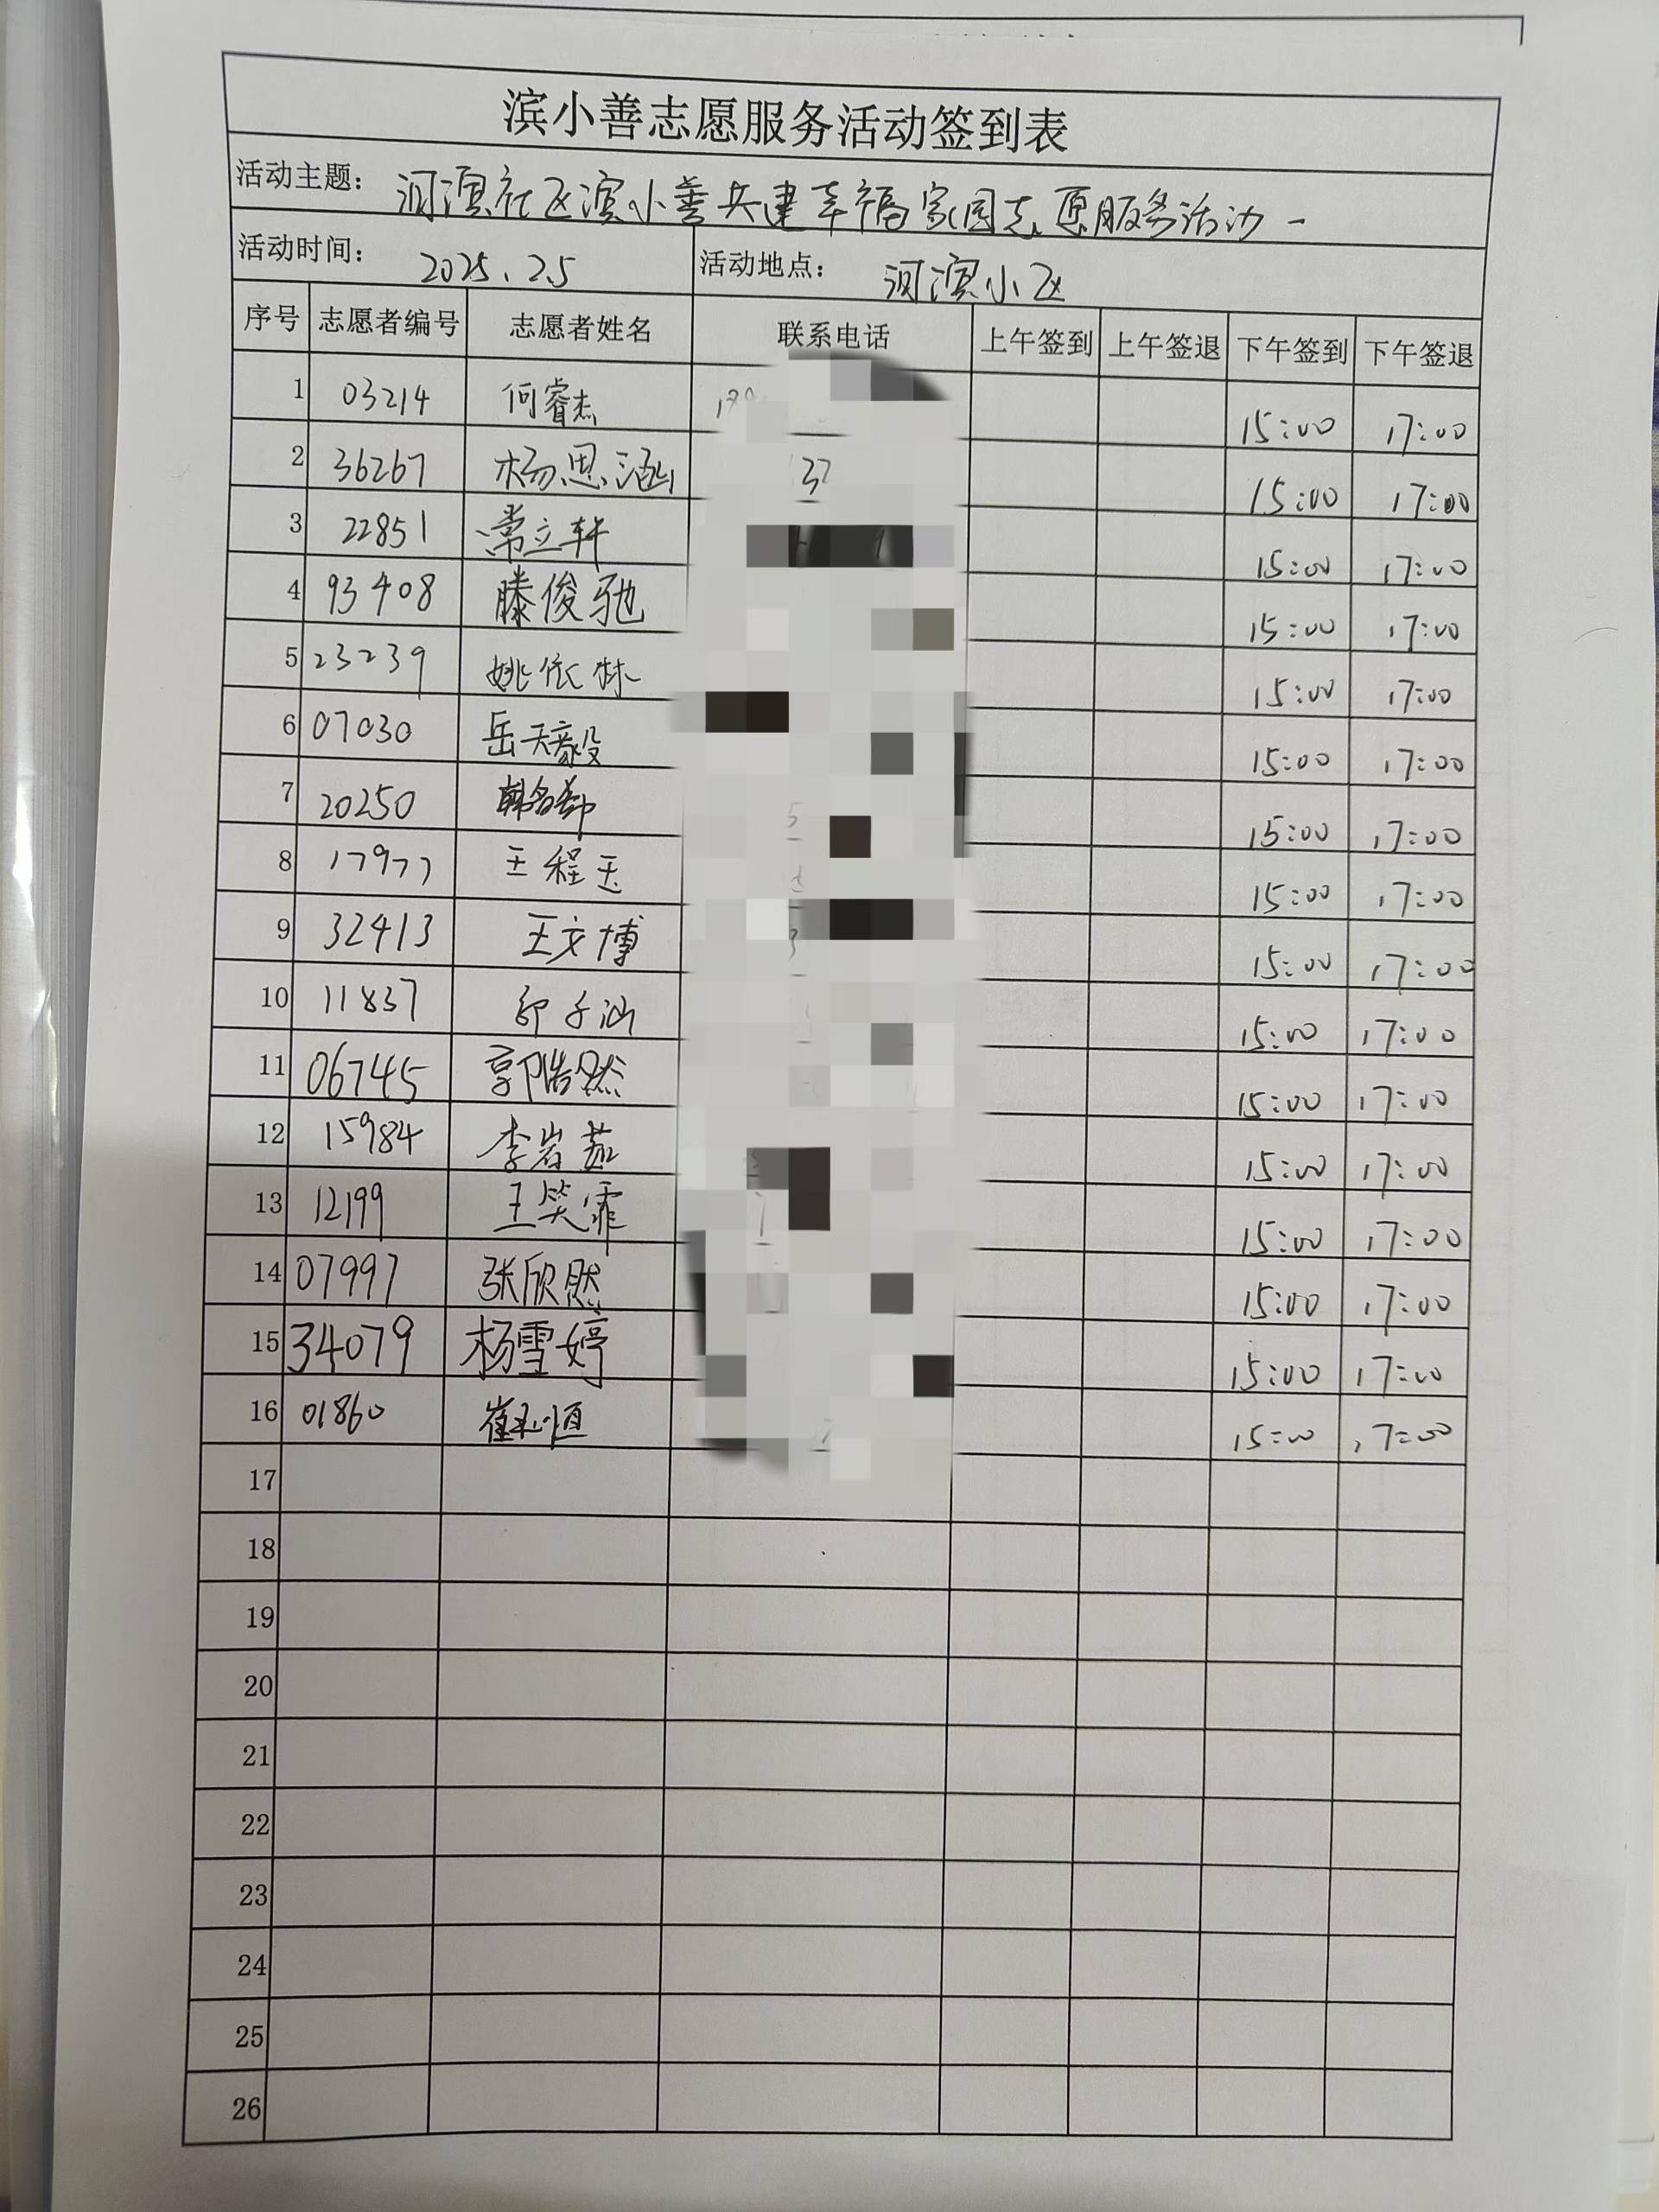 滨小善志愿服务活动签到表
活动主题： 河滨社区滨小善共建幸福家园志愿服务活动一
活动时间： 2025.2.5 活动地点： 河滨小区
序号 志愿者编号 志愿者姓名 联系电话 上午签到 上午签退 下午签到 下午签退
1 03214 何睿杰 15:00 17:00
2 36267 杨思涵 15:00 17:00
3 22851 常立轩 15:00 17:00
4 93408 滕俊驰 15:00 17:00
5 23239 姚依林 15:00 17:00
6 07030 岳天毅 15:00 17:00
7 20250 15:00 17:00
8 17977 王程玉 15:00 17:00
9 32413 王文博 15:00 17:00
10 11837 15:00 17:00
11 06745 郭浩然 15:00 17:00
12 15984 李岩茹 15:00 17:00
13 12199 王笑霏 15:00 17:00
14 07997 张欣然 15:00 17:00
15 34079 杨雪婷 15:00 17:00
16 01860 15:00 17:00
17
18
19
20
21
22
23
24
25
26